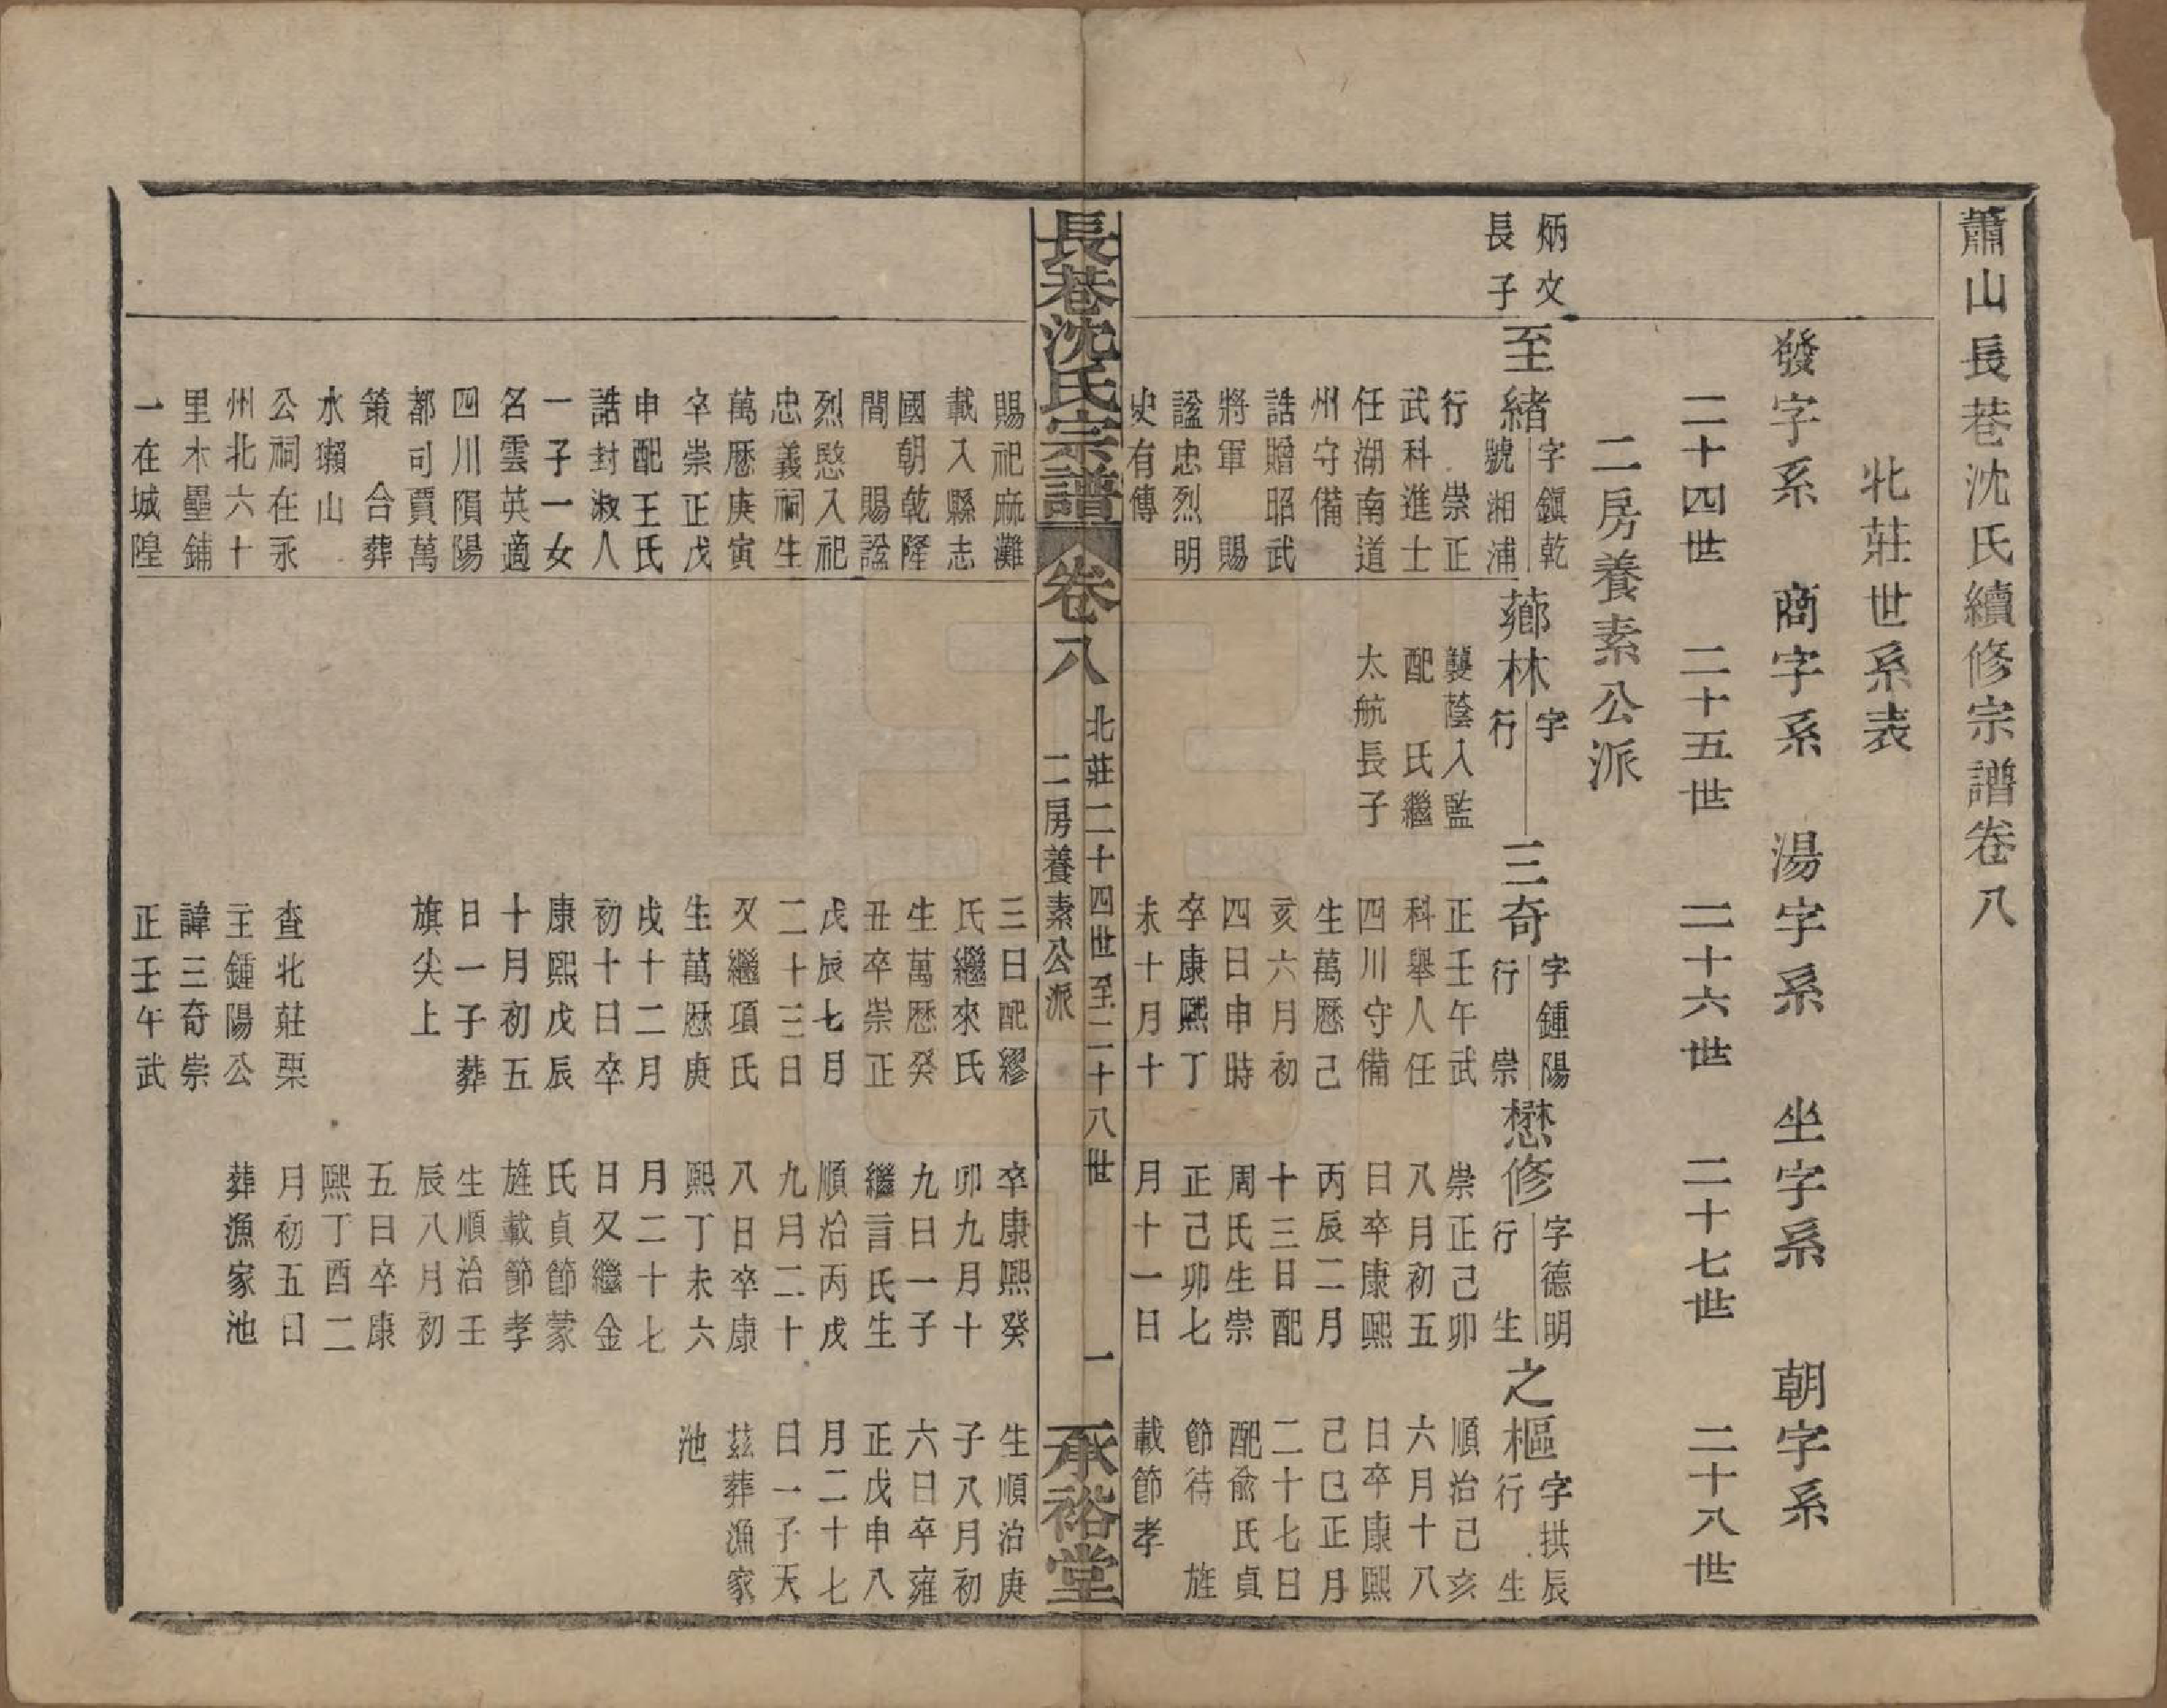 蕭山長巷沈氏續修宗譜卷八
北莊世系表
發字系　商字系　湯字系　坐字系　朝字系
二十四世　二十五世　二十六世　二十七世　二十八世
二房養素公派
炳文
長子
至緒
字鎮乾
號湘浦
行　崇正
武科進士
任湖南道
州守備
誥贈昭武
將軍　賜
謚忠烈明
史有傳
賜祀麻灘
載入縣志
國朝乾隆
間　賜謚
烈愍入祀
忠義祠生
萬厯庚寅
卒崇正戊
申配王氏
誥封淑人
一子一女
名雲英適
四川隕陽
都司賈萬
策　合葬
水獺山
公祠在永
州北六十
里木壘鋪
一在城隍
薌林
字
行
襲蔭入監
配　氏繼
太航長子
三奇
字鍾陽
行　崇
正壬午武
科舉人任
四川守備
生萬厯己
亥六月初
四日申時
卒康熙丁
未十月十
三日配繆
氏繼來氏
生萬厯癸
丑卒崇正
戊辰七月
二十三日
又繼項氏
生萬厯庚
戌十二月
初十日卒
康熙戊辰
十月初五
日一子葬
旗尖上
查北莊栗
主鍾陽公
諱三奇崇
正壬午武
懋修
字德明
行　生
崇正己卯
八月初五
日卒康熙
丙辰二月
十三日配
周氏生崇
正己卯七
月十一日
卒康熙癸
卯九月十
九日一子
繼言氏生
順治丙戌
九月二十
八日卒康
熙丁未六
月二十七
日又繼金
氏貞節蒙
旌載節孝
生順治壬
辰八月初
五日卒康
熙丁酉二
月初五日
葬漁家池
之樞
字拱辰
行　生
順治己亥
六月十八
日卒康熙
己巳正月
二十七日
配俞氏貞
節待　旌
載節孝
生順治庚
子八月初
六日卒雍
正戊申八
月二十七
日一子天
茲葬漁家
池
長巷沈氏宗譜　卷八
北莊二十四世至二十八世
二房養素公派
一
承裕堂